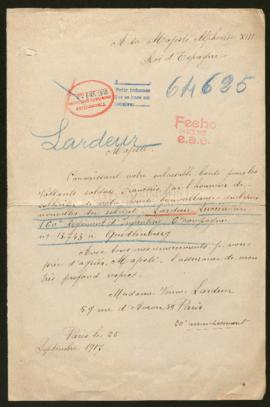 A Sa Majesté Alphonse XIII
Roi d'Espagne
64635
Fecho
e.a.e.
Lardeur
Majesté
Connaissant votre inlassable bonté pour les
vaillants soldats français, j'ai l'honneur de
solliciter de votre haute bienveillance
nouvelles du soldat Lardeur Lucien au
160e Régiment d'Infanterie Compagnie
nº 13.743 à Quedlinburg
Avec tous mes remerciements je vous
prie d'agréer, Majesté, l'assurance de mon
très profond respect.
Madame Lardeur
59 rue d'Avron 59 Paris
20e arrondissement
Paris le 25
Septembre 1917